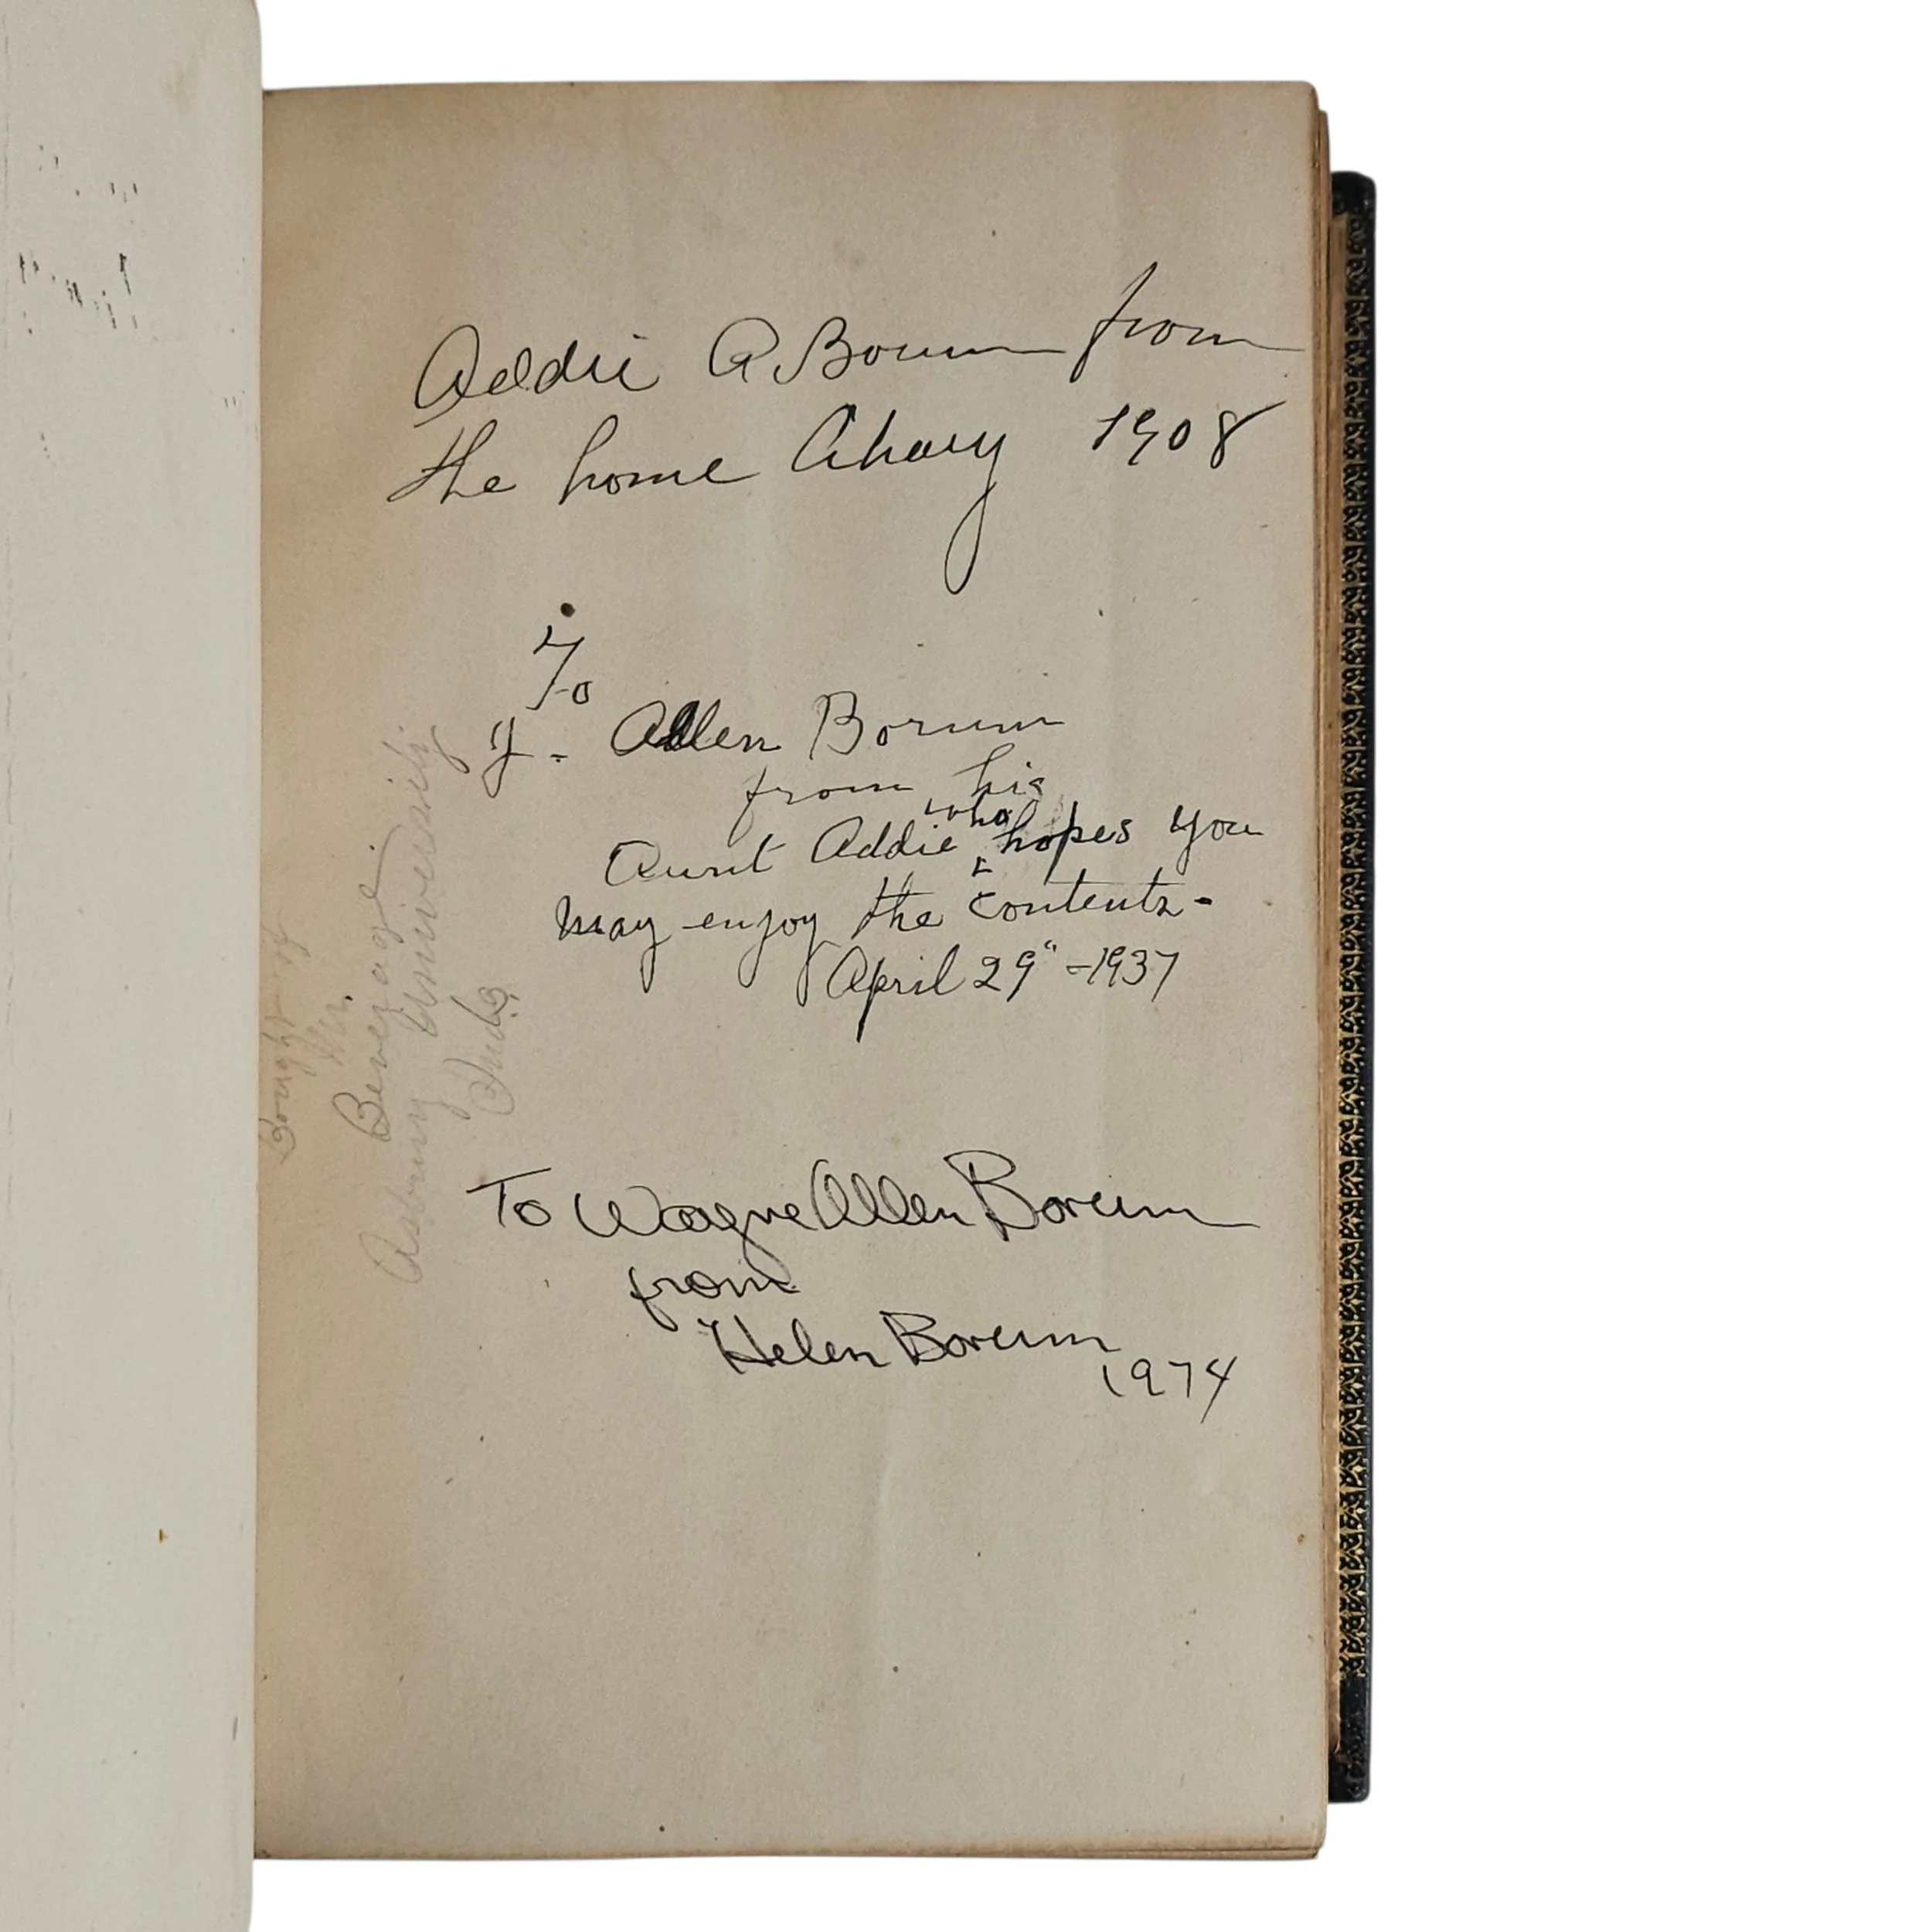 Addie A Borum from
the home 1908
To
J. Allen Borum
from his
Aunt Addie who hopes you
may enjoy the contents-
April 29" -1937
Bought of
Mr.
Beverage
Asbury University
Inda.
To Wayne Allen Borum
from
Helen Borum
1974